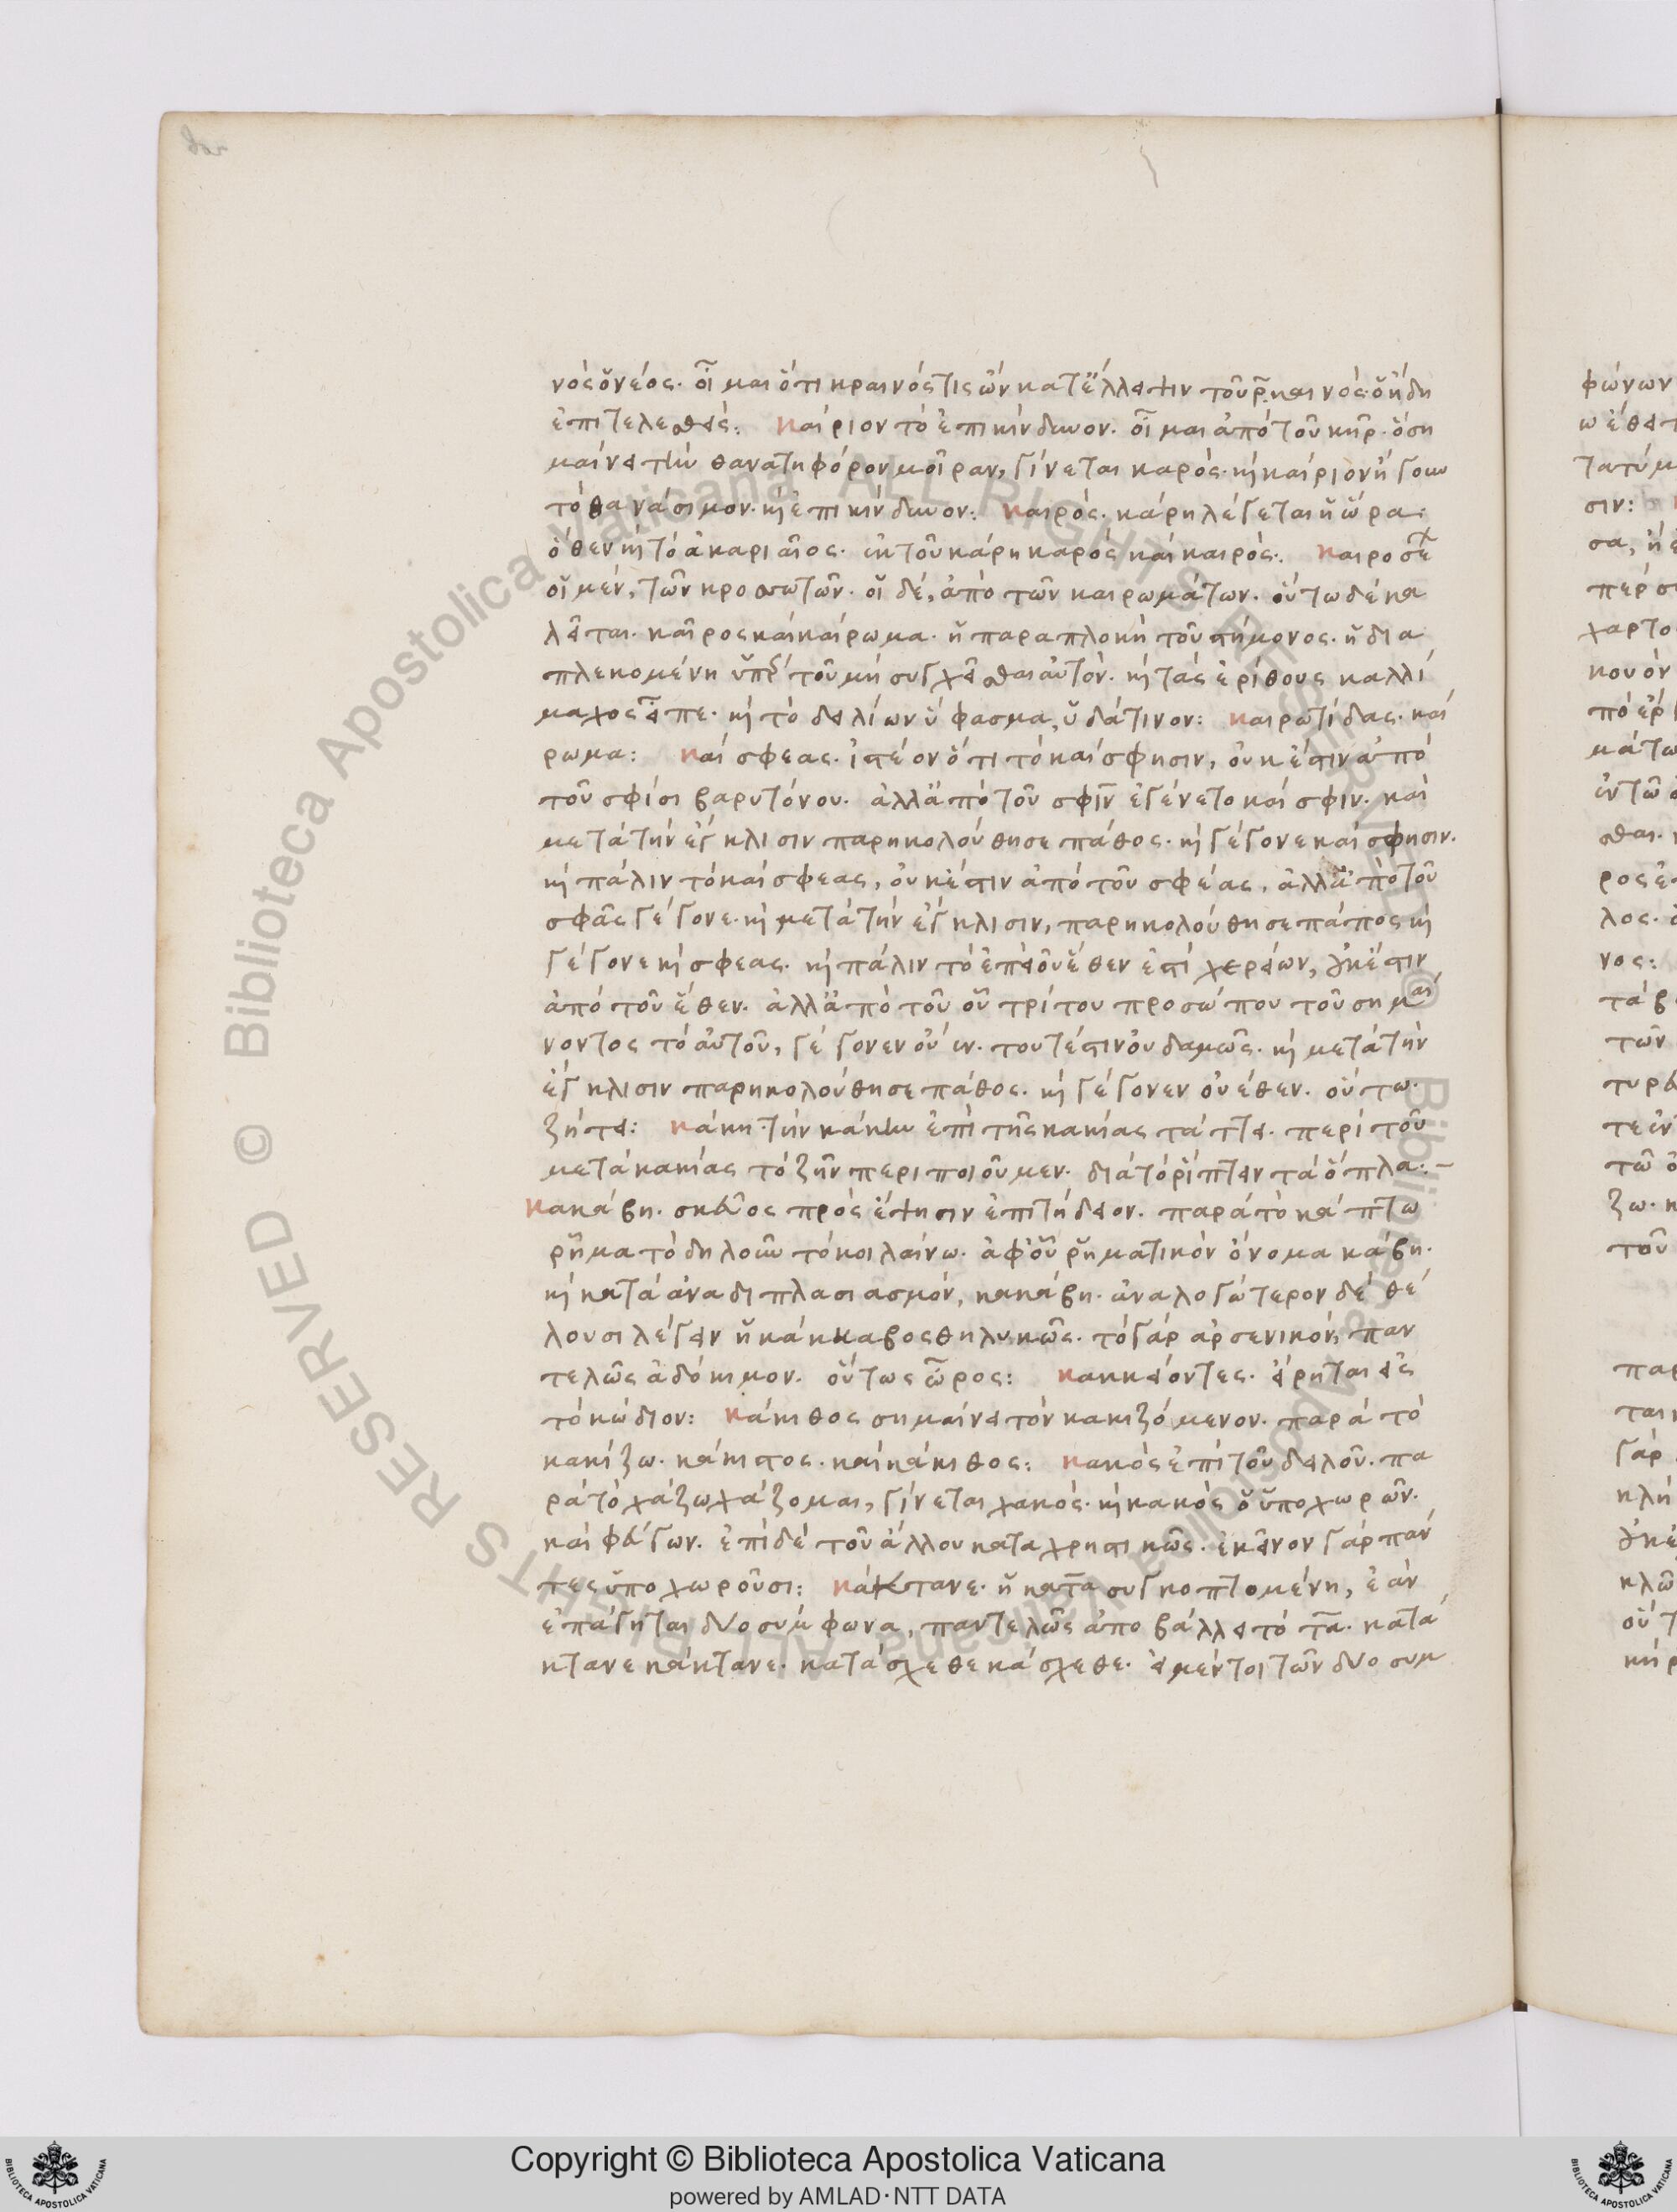 νὸς ὁ νέος. οἶμαι ὅτι κραινός τις ὢν κατ' ἔλλειψιν τοῦ ρ̄ καινός. ὁ ἤδη
ἐπιτελεσθείς: Καίριον τὸ ἐπικίνδυνον. οἶμαι ἀπὸ τοῦ κῆρ. ὃ ση
μαίνει τὴν θανατηφόρον μοῖραν, γίνεται καρός. καὶ καίριον ἤγουν
τὸ θανάσιμον. καὶ ἐπικίνδυνον: Καιρός. κάρη λέγεται ἡ ὥρα.
ὅθεν καὶ τὸ ἀκαριαῖος. ἐκ τοῦ κάρη καρός καὶ καιρός. Καιροσε
οἱ μέν, τῶν κροσσωτῶν. οἱ δέ, ἀπὸ τῶν καιρωμάτων. οὕτω δὲ κα
λεῖται. καῖρος καὶ καίρωμα. ἡ παραπλοκὴ τοῦ στήμονος. ἡ δια
πλεκομένη ὑπὲρ τοῦ μὴ συγχεῖσθαι αὐτόν. καὶ τὰς ἐρίθους καλλί
μαχος εἶπε. καὶ τὸ δειλίων ὕφασμα, ὑδάτινον: Καιρωτίδας. καί
ρωμα: Καί σφεας. ἰστέον ὅτι τὸ καί σφησιν, οὐκ ἔστιν ἀπὸ
τοῦ σφίσι βαρυτόνου. ἀλλ' ἀπὸ τοῦ σφῖν ἐγένετο καί σφιν. καὶ
μετὰ τὴν ἔγκλισιν παρηκολούθησε πάθος. καὶ γέγονε καί σφησιν.
καὶ πάλιν τὸ καί σφεας, οὐκ ἔστιν ἀπὸ τοῦ σφέας, ἀλλ' ἀπὸ τοῦ
σφᾶς γέγονε. καὶ μετὰ τὴν ἔγκλισιν, παρηκολούθησε πάπος καὶ
γέγονε καί σφεας. καὶ πάλιν τὸ ἐπεὶ οὔ ἕθεν ἐστὶ χερείων, οὐκ ἔστιν
ἀπὸ τοῦ ἕθεν. ἀλλ' ἀπὸ τοῦ οὗ τρίτου προσώπου τοῦ σημαί
νοντος τὸ αὐτοῦ, γέγονεν οὐ ἐν. τουτέστιν οὐδαμῶς. καὶ μετὰ τὴν
ἔγκλισιν παρηκολούθησε πάθος. καὶ γέγονεν οὐ ἕθεν. οὕτω.
ζήτει: Κάκη. τὴν κάκην ἐπὶ τῆς κακίας τάττει. περὶ τοῦ
μετὰ κακίας τὸ ζῆν περιποιοῦμεν. διὰ τὸ ῥίπτειν τὰ ὅπλα.
Κακάβη. σκεῦος πρὸς ἕψησιν ἐπιτήδειον. παρὰ τὸ κάπτω
ῥῆμα τὸ δηλοῦν τὸ κοιλαίνω. ἀφ' οὗ ῥηματικὸν ὄνομα κάβη.
καὶ κατὰ ἀναδιπλασιασμόν, κακάβη. ἀναλογώτερον δὲ θέ
λουσι λέγειν ἡ κάκκαβος θηλυκῶς. τὸ γὰρ ἀρσενικόν, παν
τελῶς ἀδόκιμον. οὕτως ὦρος: Κακκείοντες. εἴρηται εἰς
τὸ κώδιον: Κάκιθος σημαίνει τὸν κακιζόμενον. παρὰ τὸ
κακίζω. κάκιστος. καὶ κάκιθος: Κακὸς ἐπὶ τοῦ δειλοῦ. πα
ρὰ τὸ χάζω χάζομαι, γίνεται χακός. καὶ κακὸς ὁ ὑποχωρῶν.
καὶ φεύγων. ἐπὶ δὲ τοῦ ἄλλου καταχρηστικῶς. ἐκεῖνον γὰρ πάν
τες ὑποχωροῦσι: Κάκτανε. ἡ κατα συγκοπτομένη, ἐὰν
ἐπάγηται δύο σύμφωνα, παντελῶς ἀποβάλλει τὸ τα. κατά
κτανε κάκτανε. κατάσχεθε κάσχεθε. εἰ μέντοι τῶν δύο συμ